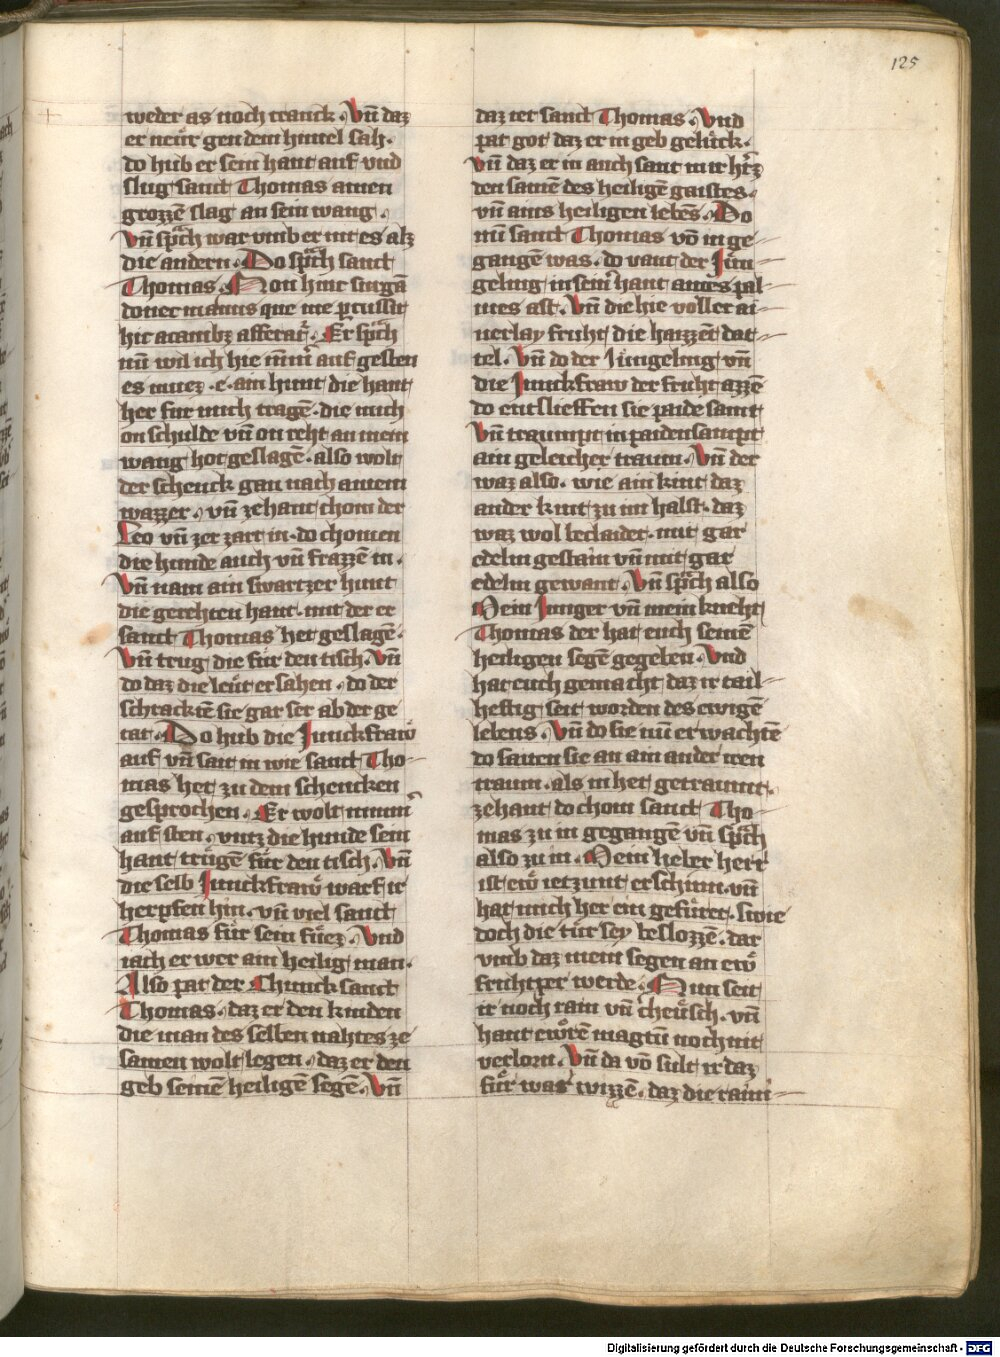 125
weder as noch tranck. Vñ daz
er neür gen dem himel sah.
do hub er sein hant auf vnd
slug sanct Thomas ainen
grozzē slag an sein wang.
Vñ sp̃ch war vmb er nit es alz
die andern. Do sp̃ch sanct
Thomas. Non hinc surgā
donec manus que me percussit
hic a canibz afferat᷑. Er sp̃ch
nu wil ich hie nimm̃ auf gesten
es muez. e. ain hunt die hant
her für mich tragē. die mich
on schulde vñ on reht an mein
wang hot geslagē. also wolt
der schenck gan nach ainem
wazzer. vñ zehant chom der
Leo vñ zer zart in. do chomen
die hunde auch vñ frazzē in.
Vñ nam ain swartzer hunt
die gerehten hant. mit der er
sanct Thomas het geslagē.
Vñ trug die für den tisch. Vñ
do daz die leüt ersahen. do der
schracktē sie gar ser ab der ge
tat. Do hub die Junckfraw
auf vñ sait in wie sanct Tho-
mas het zu dem schencken
gesprochen. Er wolt nimm̃
auf sten. vntz die hunde sein
hant trügē für den tisch. Vñ
die selb Junckfraw warf ir
herpfen hin. vñ viel sanct
Thomas für sein füez. Vnd
iach er wer ain heilig man.
Also pat der Chunck sanct
Thomas. daz er den kinden
die man des selben nahtes ze
samen wolt legen. daz er den
geb seinē heiligē segē. Vñ
daz tet sanct Thomas. Vnd
pat got daz er in geb gelück.
Vñ daz er in auch sant in ir h̃tz
den samē des heiligē gaistes.
vñ ains heiligen lebēs. Do
nu sanct Thomas vō in ge-
gangē was. do vant der Jün-
geling in sein̄ hant aines pal-
mes ast. Vñ die hie voller ai-
nerlay fruht die haizzēt dat-
tel. Vñ do der Jüngeling vñ
die Junckfraw der fruht azzē
do entslieffen sie paide samt
Vñ traumpt in paiden sampt
ain geleicher traum. Vñ der
waz also. wie ain kint daz
ander kint zu im halst. daz
waz wol beclaidet. mit gar
edelm gestain vñ mit gar
edelm gewant. Vñ sp̃ch also
Mein Junger vñ mein kneht
Thomas der hat euch seinē
heiligen segē gegeben. Vnd
hat euch gemacht daz ir tail-
heftig seit worden des ewigē
lebens. Vñ do sie nu erwachtē
do saiten sie an ain ander iren
traum. als in het getraumt.
zehant do chom sanct Tho-
mas zu in gegangē vñ sp̃ch
also zu in. Mein lieber herr
ist ew ietzunt erschinn. vñ
hat mich her ein gefüret. swie
doch die tür sey beslozzē. dar
vmb daz mein segen an ew
fruhtper werde. Nun seit
ir noch rain vñ cheüsch. vñ
hant ewrē magtū noch nit
verlorn. Vñ da vō sült ir daz
für war wizzē. daz die raini-
Digitalisierung gefördert durch die Deutsche Forschungsgemeinschaft - DFG